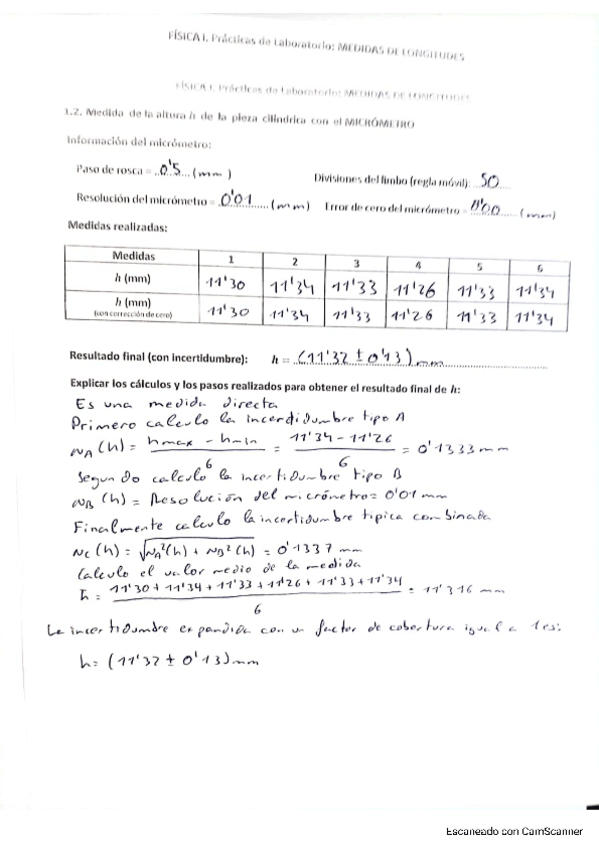 FÍSICA I. Prácticas de Laboratorio: MEDIDAS DE LONGITUDES
FÍSICA I. Prácticas de Laboratorio: MEDIDAS DE LONGITUDES
1.2. Medida de la altura h de la pieza cilíndrica con el MICRÓMETRO
Información del micrómetro:
Paso de rosca = 0'5 (mm) Divisiones del limbo (regla móvil): 50
Resolución del micrómetro = 0'01 (mm) Error de cero del micrómetro = 0'00 (mm)
Medidas realizadas:
Medidas 1 2 3 4 5 6
h (mm) 11'30 11'34 11'33 11'26 11'33 11'34
h (mm) (con corrección de cero) 11'30 11'34 11'33 11'26 11'33 11'34
Resultado final (con incertidumbre): h = (11'32 ± 0'13) mm
Explicar los cálculos y los pasos realizados para obtener el resultado final de h:
Es una medida directa
Primero calculo la incerdidumbre tipo A
u_A (h) = (hmax - hmin) / 6 = (11'34 - 11'26) / 6 = 0'1333 mm
Segundo calculo la incertidumbre tipo B
u_B (h) = Resolución del micrómetro = 0'01 mm
Finalmente calculo la incertidumbre tipica combinada
u_C (h) = √(u_A²(h) + u_B²(h)) = 0'1337 mm
Calculo el valor medio de la medida
h̄ = (11'30 + 11'34 + 11'33 + 11'26 + 11'33 + 11'34) / 6 = 11'316 mm
La incertidumbre expandida con un factor de cobertura igual a 1 es:
h = (11'32 ± 0'13) mm
Escaneado con CamScanner